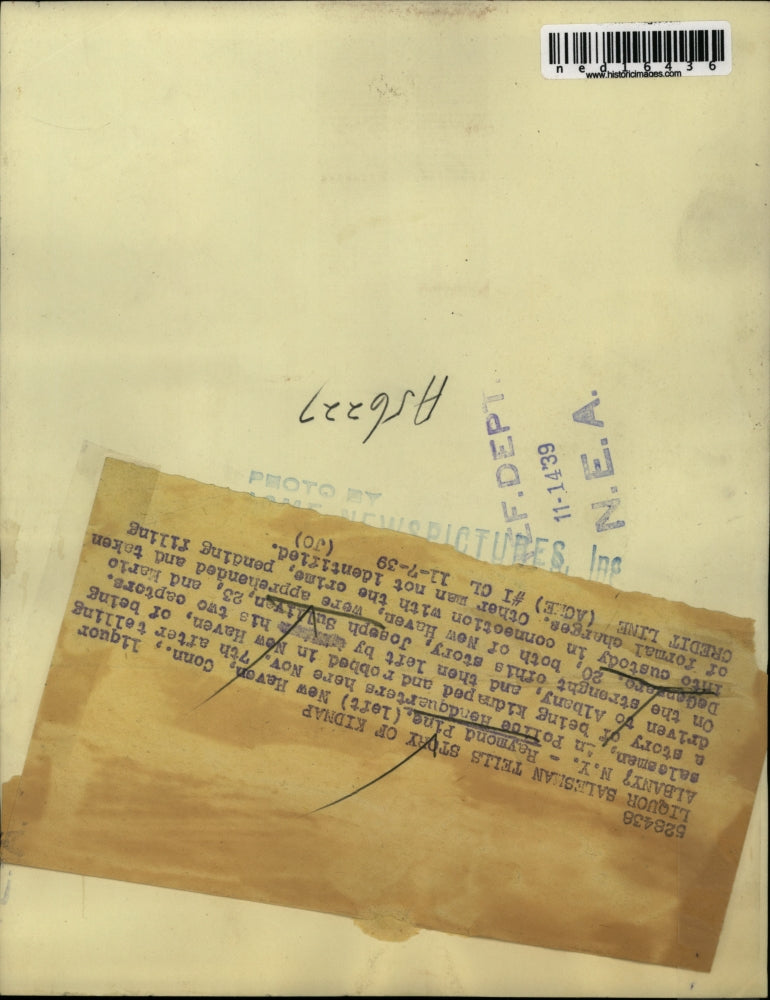 ned16436
www.historicimages.com
A56227
REF. DEPT.
11-14-39
N.E.A.
PHOTO BY
ACME NEWSPICTURES, Inc
528438
LIQUOR SALESMAN TELLS STORY OF KIDNAP
ALBANY, N.Y. - Raymond Pine, (left) New Haven, Conn., liquor
salesman, in Police Headquarters here Nov. 7th after telling
a story of being kidnaped and robbed in New Haven, of being
driven to Albany, and then left by his two captors.
On the strenght ofhis story, Joseph Sullivan, 23, and Mario
DeGennaro, 20, both of New Haven, were apprehended and taken
into custody in connection with the crime, pending filling
of formal charges. Other man not identified.
CREDIT LINE (ACME) #1 CL 11-7-39 (JO)